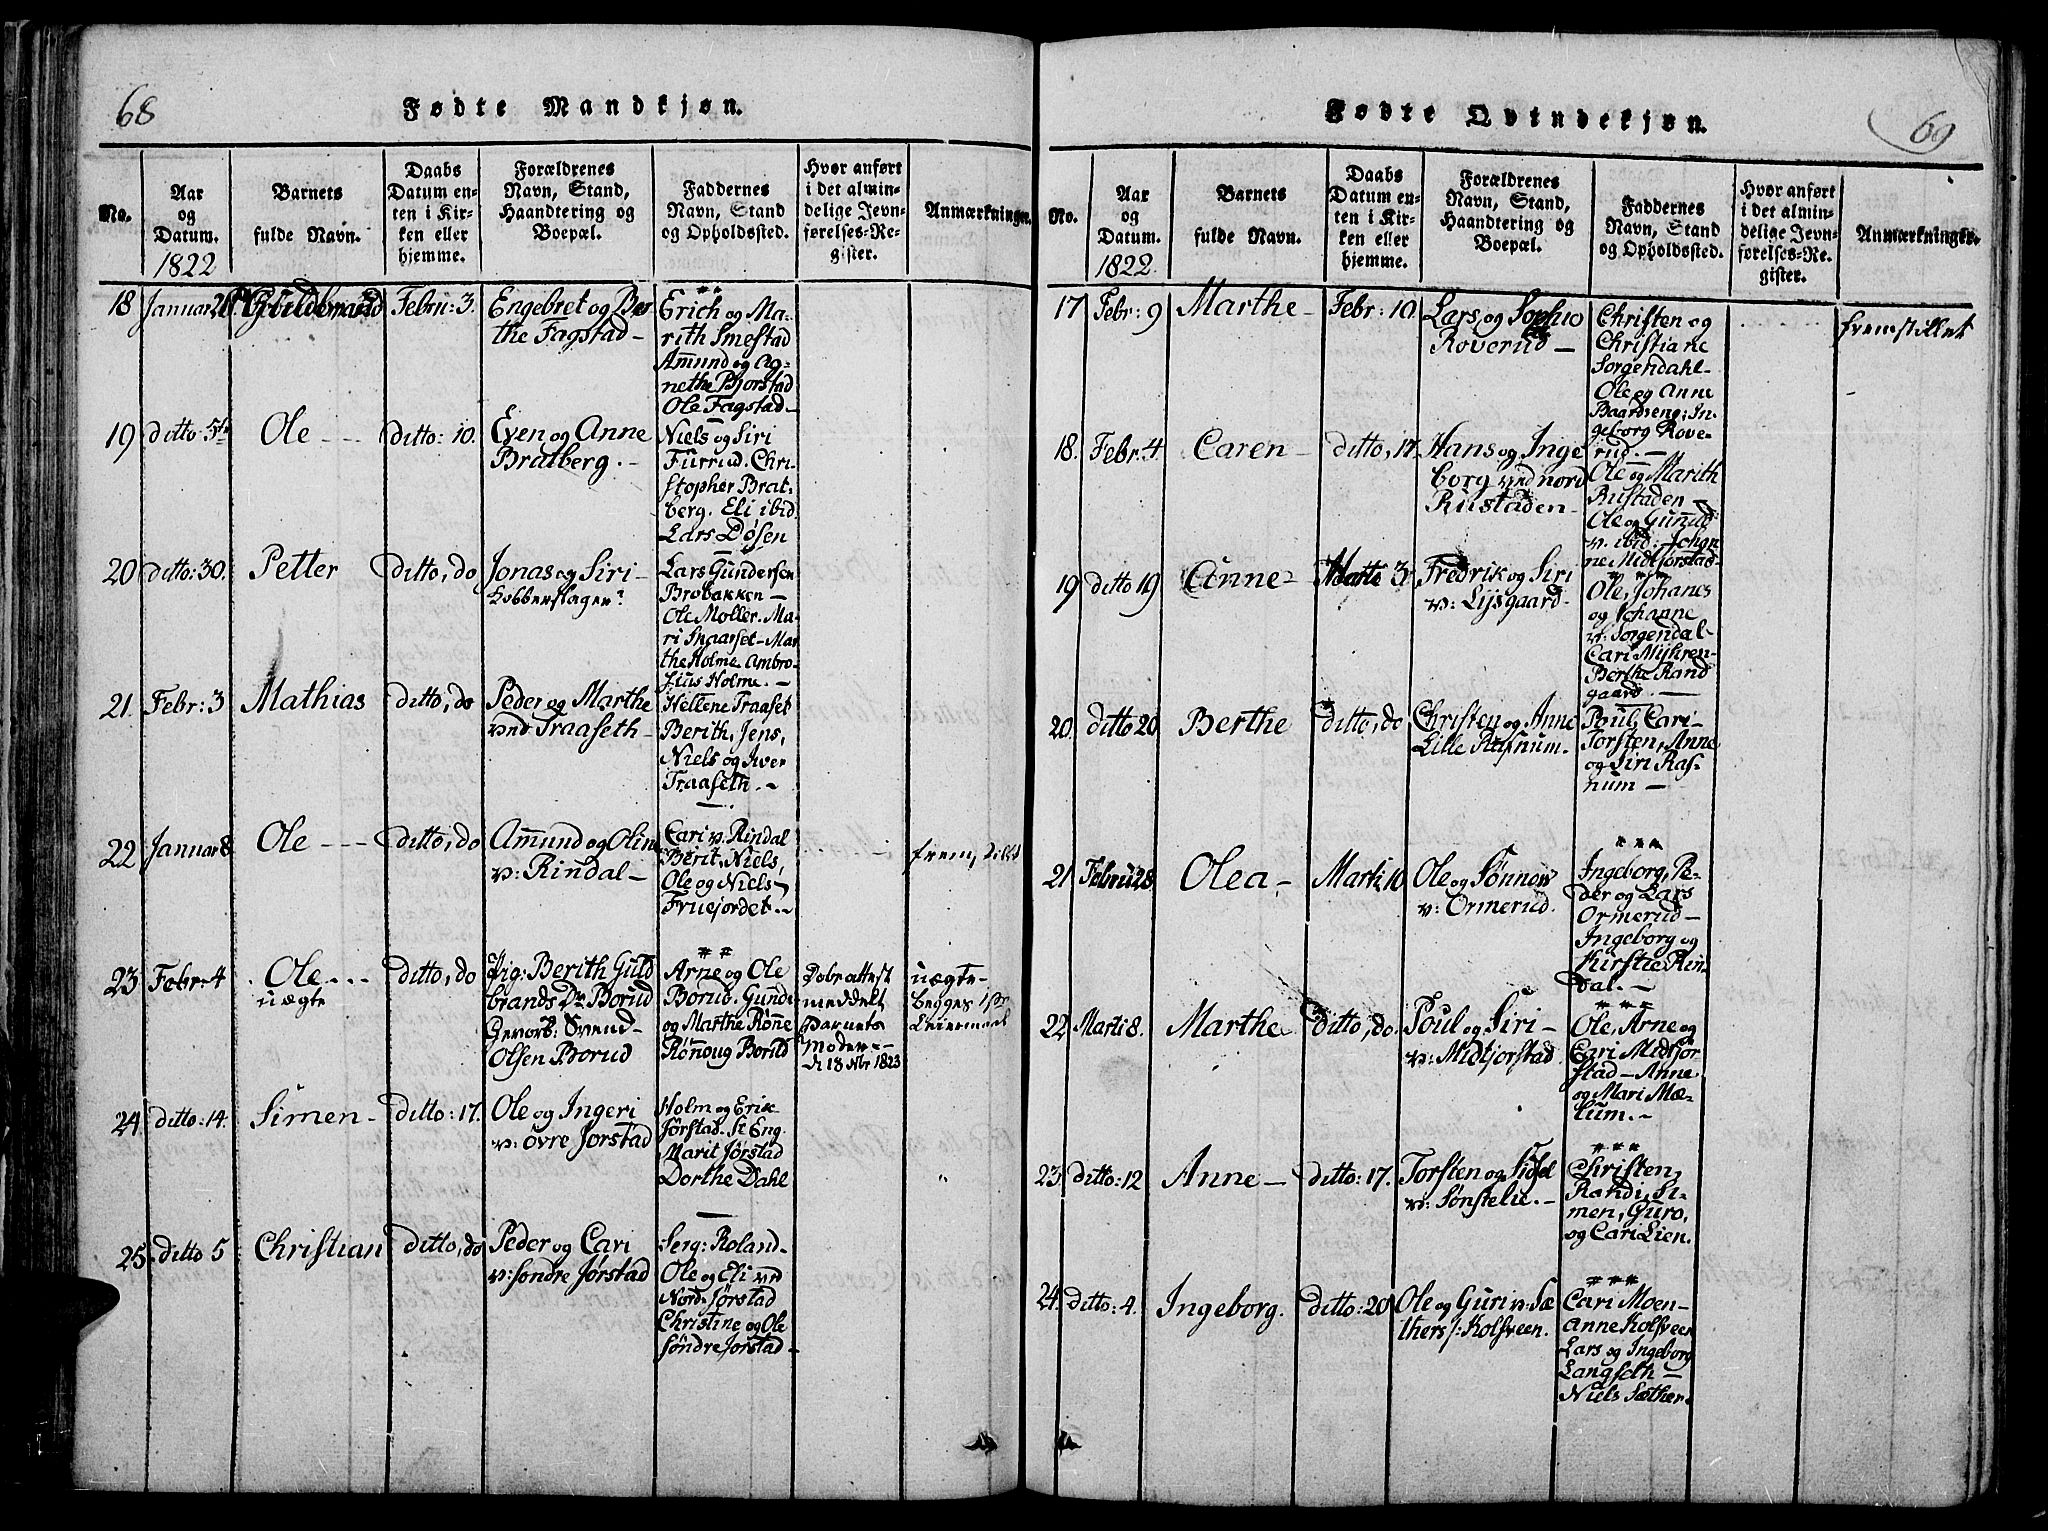 68
Fødte Mandkjøn.
No.
Aar
og
Datum.
1822
Barnets
fulde Navn.
Daabs
Datum en-
ten i Kir-
ken eller
hjemme.
Forældrenes
Navn, Stand,
Haandtering og
Boepæl.
Faddernes
Navn, Stand
og Opholdssted.
Hvor anført
i det almin-
delige Jevn-
førelses-Re-
gister.
Anmærkninger.
18 Januar Febru: 3.
Engebret og Ber
the Fagstad-
Erich og Ma-
rith Smestad
Amund og Ag-
nethe Bjorstad
Ole Fagstad-
19 ditto: 5te Ole --- ditto: 10.
Even og Anne
Bratberg.-
Niels og Siri
Furrud. Chri-
stopher Brat-
berg. Eli ibid
Lars Døsen
20 ditto: 30. Petter ditto, do
Jonas og Siri-
Kobberslager
Lars Gundersen
Brobakken-
Ole Moller. Ma-
ri Snaarset-Mar
the Holme Ambro-
sius Holme.-
21. Febr: 3 Mathias ditto, do
Peder og Marthe
vnd Traaseth-
Hellene Traaset
Berith, Jens,
Niels og Iver
Traaseth.-
22 Januar 8. Ole --- ditto, do
Amund og Olin
v: Rindal-
Cari v: Rindal
Berit, Niels,
Ole og Niels
Fruejordet.-
fremstillet
23 Febr: 4 Ole ---
uægte
ditto, do
Pig: Berith Guld
brands Dr Borud
Ungkarl: Svend
Olsen Borud
# #
Arne og Ole
Borud. Gundi
og Marthe Rønne
Rønnoug Borud
Dobeattest
meddelt
Barnets
Moder --
d: 18 Nbr 1823
uægte-
begges 1ste
Leiermaal
24 ditto: 14. Simen- ditto: 17.
Ole og Ingeri
v: øvre Jorstad
Holm og Erik
Jørstad. Sc Eng.
Marit Jørstad
Dorthe Dahl
25 ditto 5 Christian ditto, do
Peder og Cari
v: søndre Jørstad
Serg: Roland-
Ole og Eli vnd
Nord: Jørstad
Christine og Ole
Søndre Jørstad-
69
Fødte Qvindekjøn.
No.
Aar
og
Datum.
1822.
Barnets
fulde Navn.
Daabs
Datum en-
ten i Kir-
ken eller
hjemme.
Forældrenes
Navn, Stand,
Haandtering og
Boepæl.
Faddernes
Navn, Stand
og Opholdssted.
Hvor anført
i det almin-
delige Jevn-
førelses-Re-
gister.
Anmærkninger.
17 Febr: 9 Marthe- Febr: 10.
Lars og Sophie
Roverud-
Christen og
Christiane
Sorgendahl-
Ole og Anne
Baardseng; In-
geborg Rove-
rud.-
fremstillet
18. Febr: 4 Caren- ditto, 17.
Hans og Inge
borg vnd nord
Rustaden-
Ole og Marith
Rustaden-
Ole og Gunnild
v. ibid: Johan
ne Midtjorstad-
19 ditto 19 Anne- Martii 3.
Fredrik og Siri
v: Lysgaard-
Ole, Johanes
og Johanne
v: Sorgendal-
Cari Myhren-
Berthe Rand
gaard.-
20. ditto 20 Berthe ditto, do
Christen og Anne
Lille Rusnum.-
Poul, Cari-
Torsten, Anne
og Siri Ras-
num-
21 Febru: 28. Olea- Marti: 10
Ole og Sønnov
v: Ormerud.
# # #
Ingeborg, Pe-
der og Lars
Ormerud-
Ingeborg og
Kirstie Rin-
dal.-
22 Marti 8. Marthe ditto, do.
Poul og Siri-
v: Midtjorstad
# # #
Ole, Arne og
Cari Midtjor
stad-Anne
og Mari Mæ-
lum.-
23 ditto: 12 Anne- ditto: 17.
Torsten og Sidsel
v: Sønstelie.-
# # #
Siristen,
Randi, Si-
men, Guro,
og Cari Lien.
24. ditto: 4. Ingeborg. ditto: 20
Ole og Guri v: Sæ
thers/: Kolsveen.
# # #
Cari Moen-
Anne Kolsveen
Lars og Ingeborg
Langseth-
Niels Sæther.